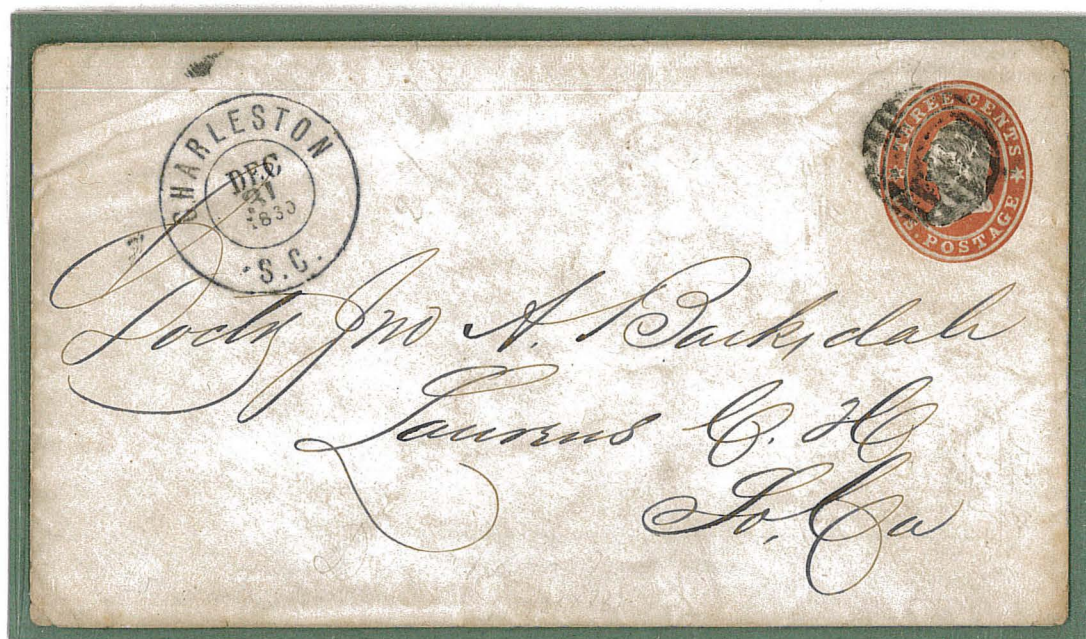 CHARLESTON
DEC
31
S.C.
THREE CENTS
U.S POSTAGE
Doctr Jno A. Barksdale
Laurens C. H
So, Ca